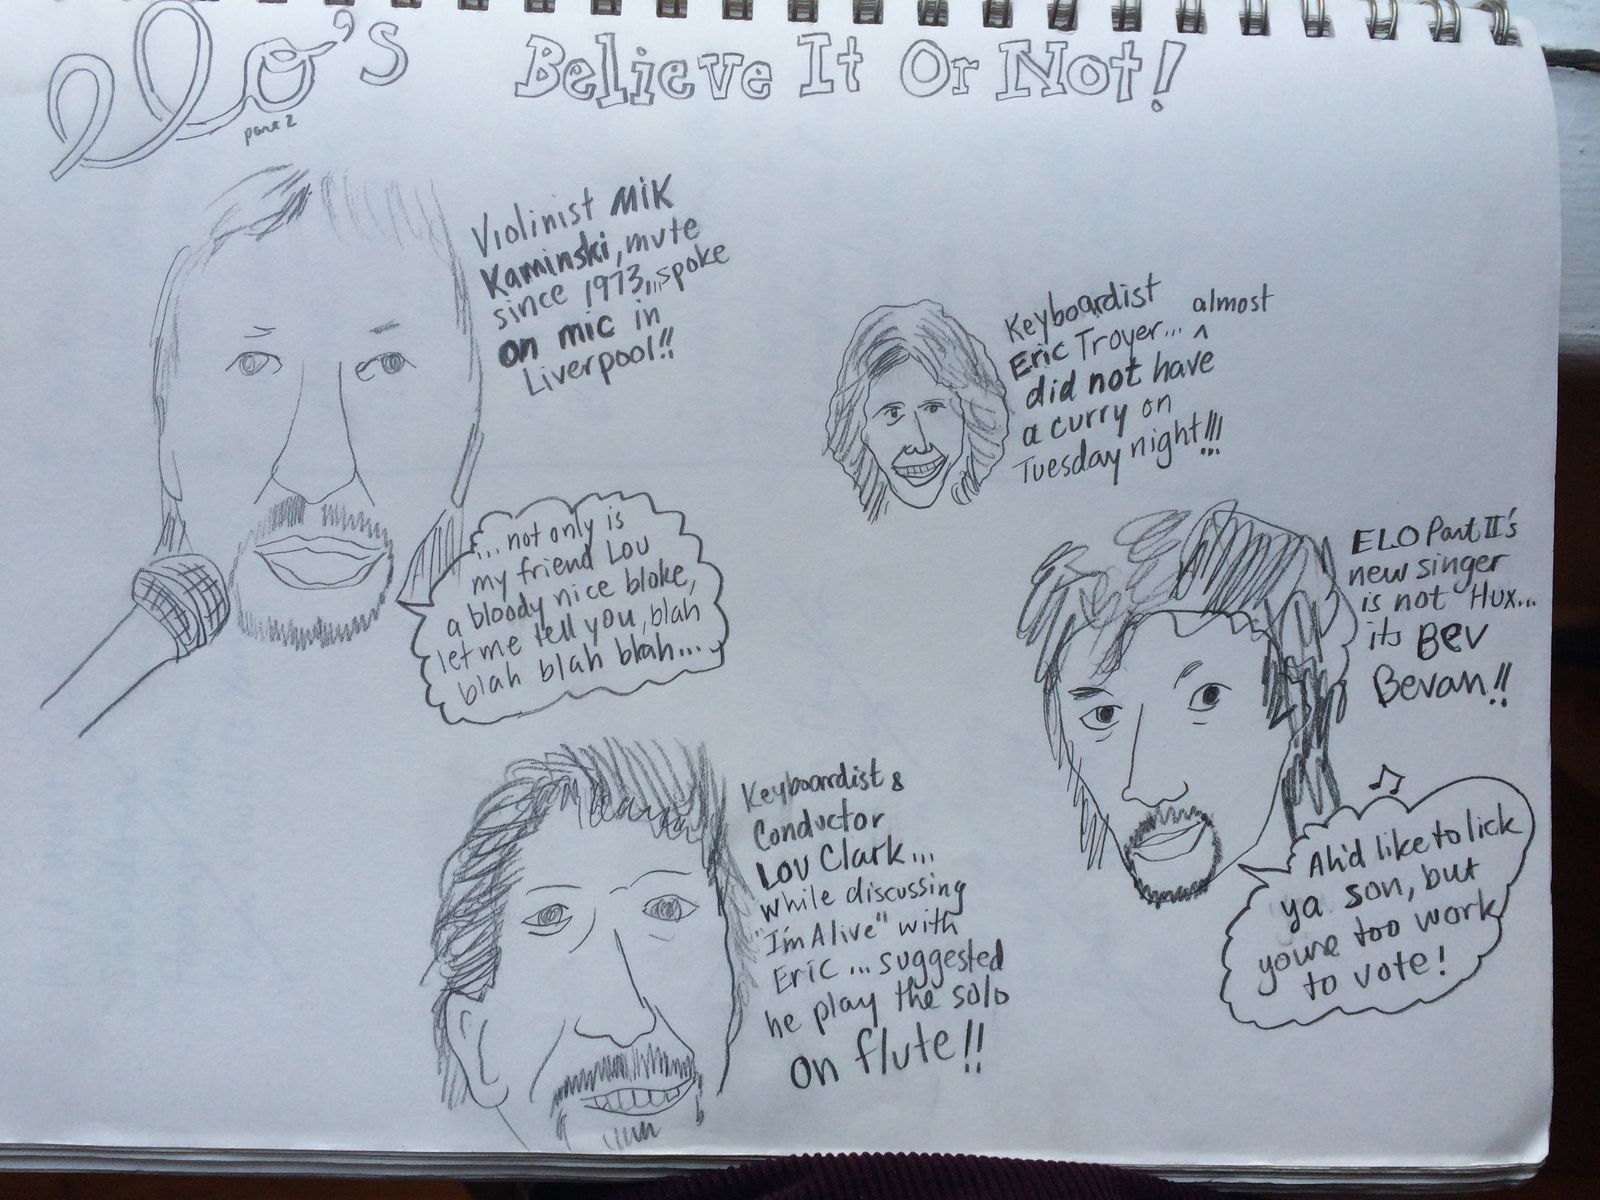 elo's
part 2
Believe It Or Not!
Violinist Mik
Kaminski, mute
since 1973,,,spoke
on mic in
Liverpool!!
...not only is
my friend Lou
a bloody nice bloke,
let me tell you, blah
blah blah blah...
Keyboardist
Eric Troyer... almost
did not have
a curry on
Tuesday night!!!
ELO Part II's
new singer
is not Hux...
its Bev
Bevan!!
Ah'd like to lick
ya son, but
youre too work
to vote!
Keyboardist &
Conductor
Lou Clark...
while discussing
"I'm Alive" with
Eric... suggested
he play the solo
on flute!!